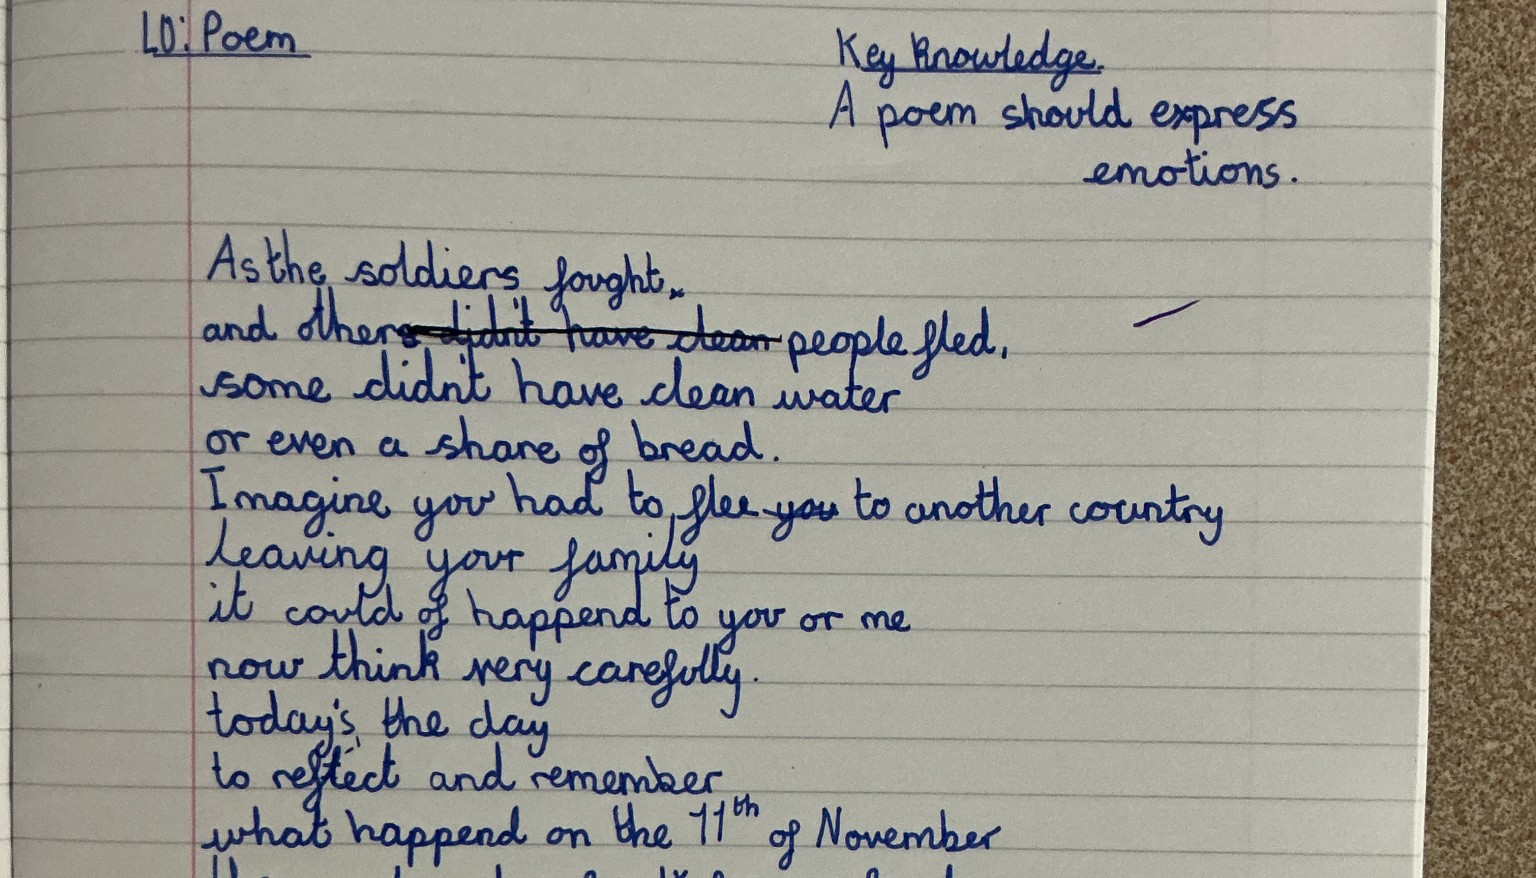 LO: Poem
Key Knowledge.
A poem should express
emotions.
As the soldiers fought,
and others didn't have clean people fled,
some didn't have clean water
or even a share of bread.
Imagine you had to flee you to another country
leaving your family
it could of happend to you or me
now think very carefully.
today's the day
to reflect and remember
what happend on the 11th of November